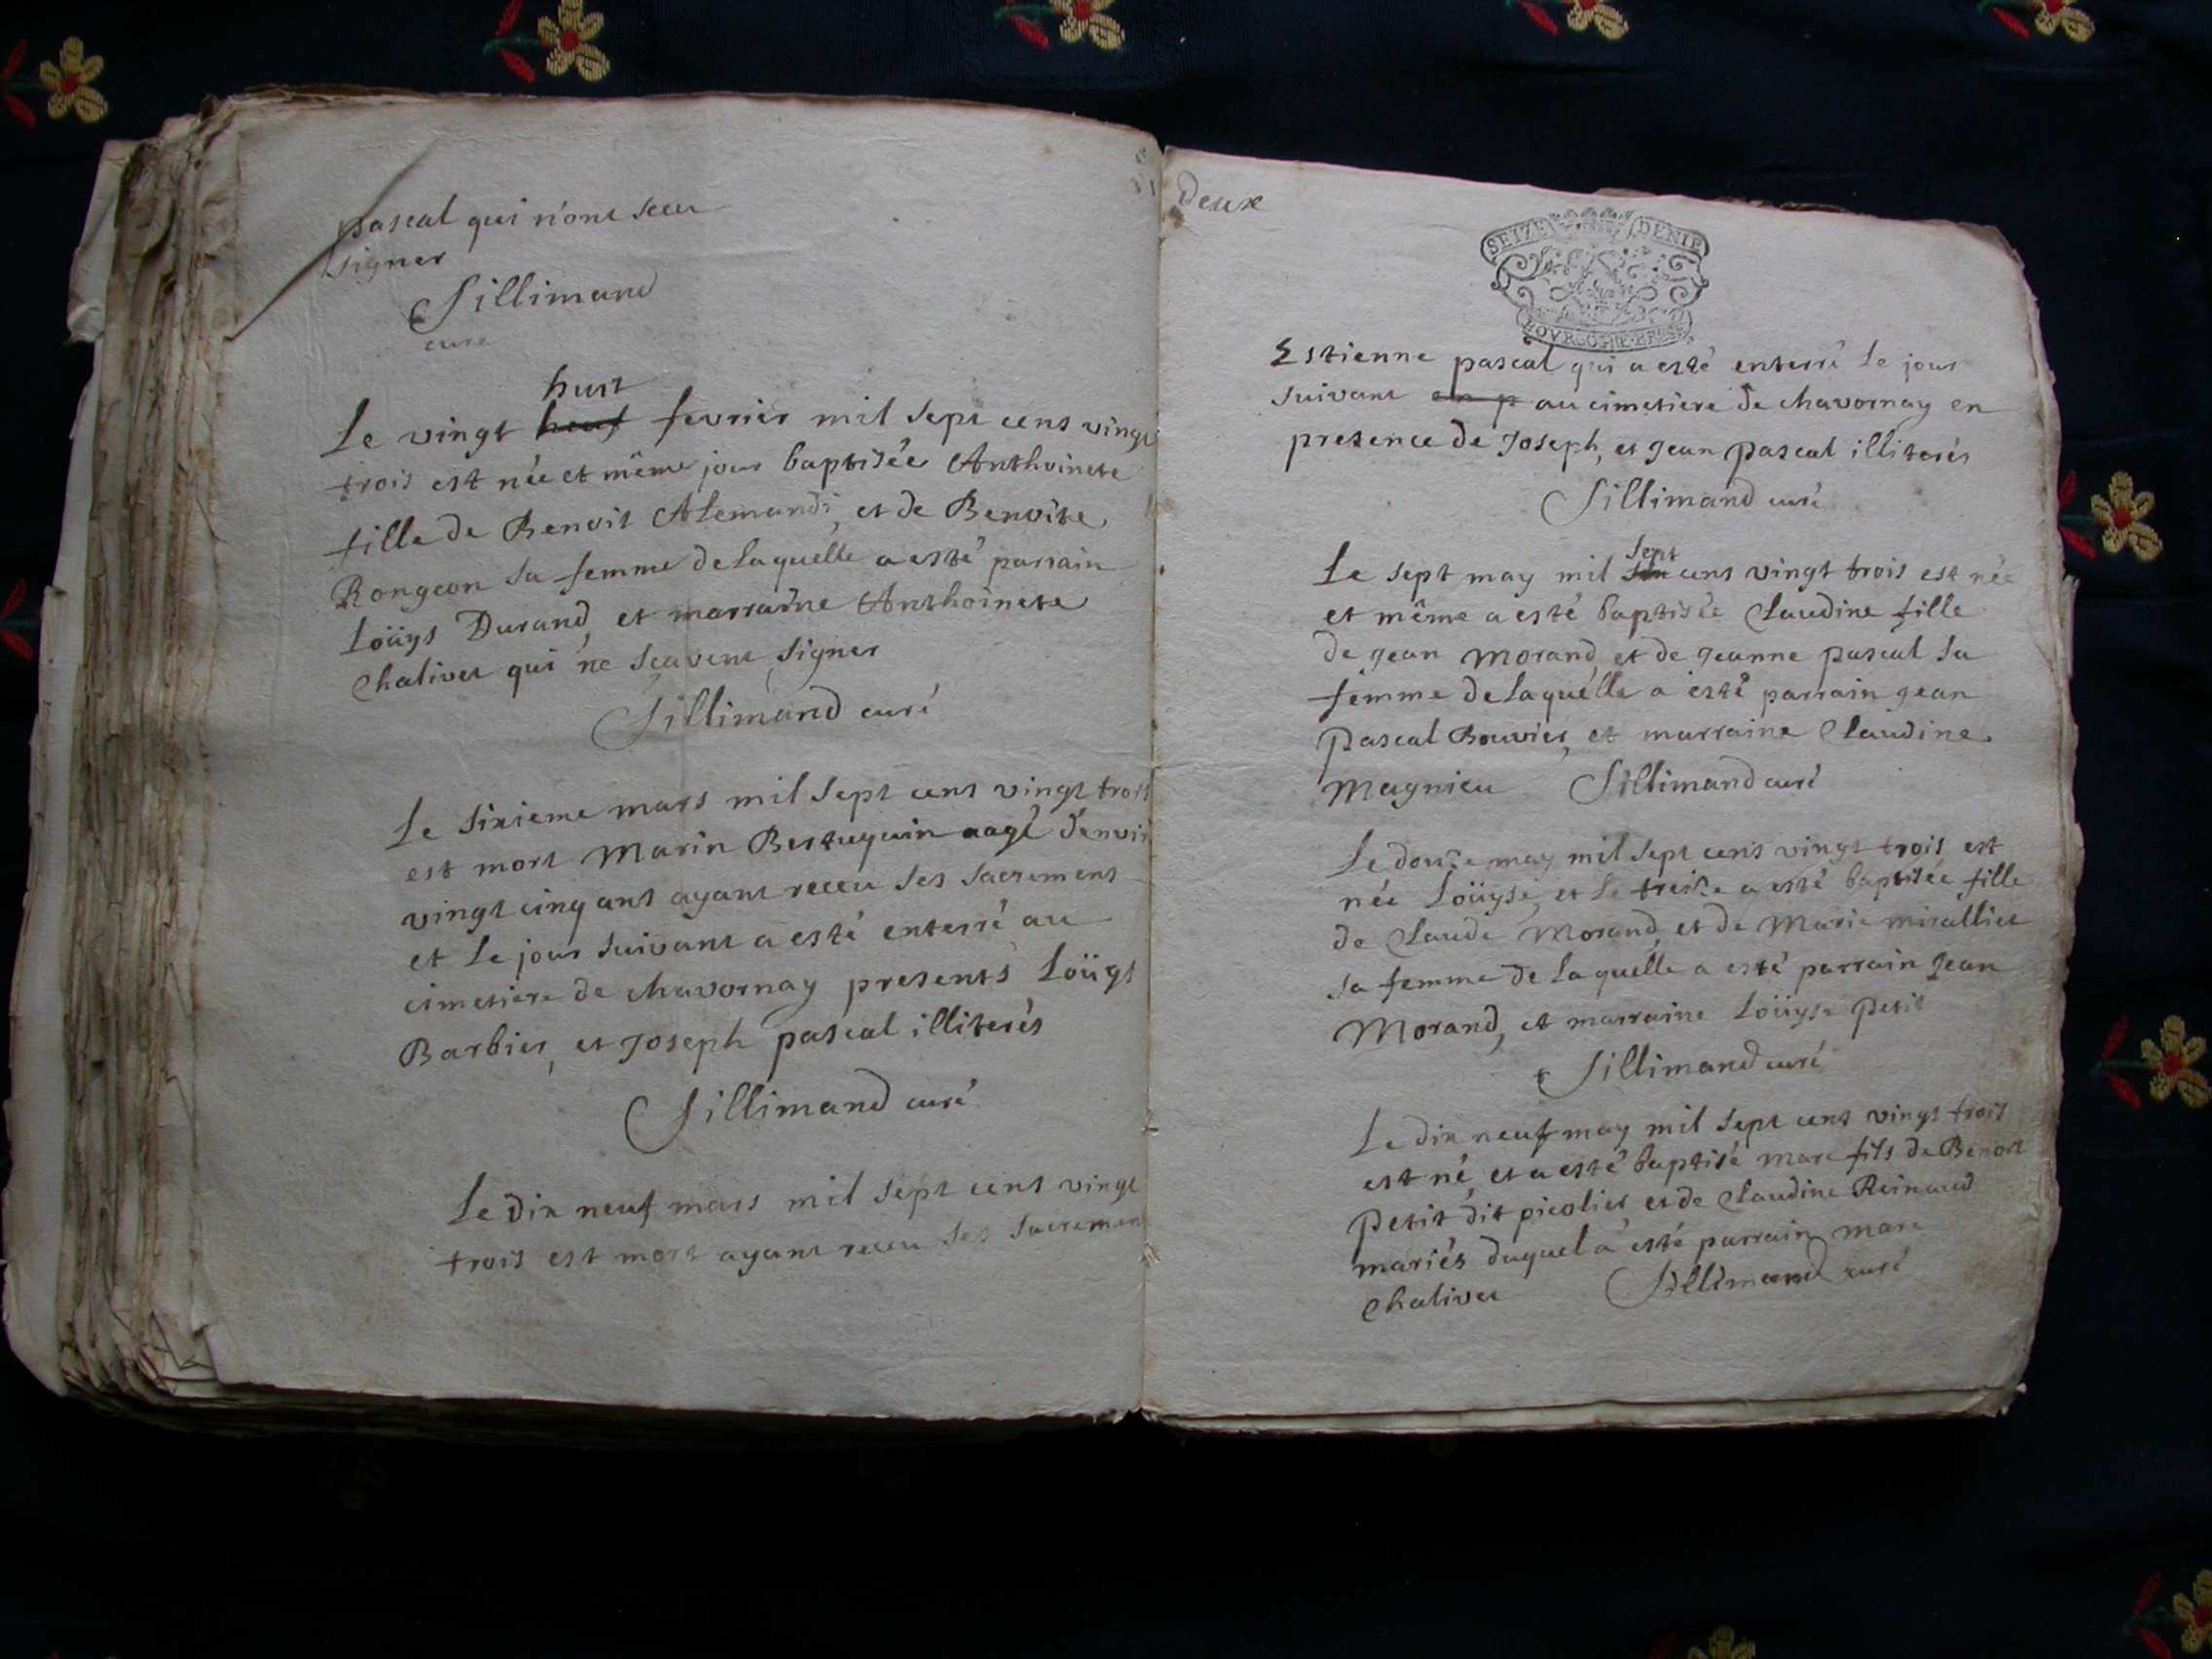 pascal qui n'ont sceu
signer
Sillimand
curé
huit
Le vingt neuf fevrier mil sept cens vingt
trois est née et même jour baptisée Anthoinete
fille de Benoit Alemandi, et de Benoite
Rongeon sa femme de laquelle a esté parrain
Loüys Durand, et marraine Anthoinete
Chalivet qui ne sçavent signer
Sillimand curé
Le sixieme mars mil sept cens vingt trois
est mort Marin Bertuquin aagé d'envir
vingt cinq ans ayant receu ses sacremens
et le jour suivant a esté enterré au
cimetiere de chavornay presents Loüys
Barbier, et Joseph pascal illiterés
Sillimand curé
Le dix neuf mars mil sept cens vingt
trois est mort ayant receu ses sacremen
Deux
SEIZE DENIE
BOVRGOGNE BRESSE
Estienne pascal qui a esté enterré le jour
suivant en p au cimetiere de chavornay en
presence de Joseph, et Jean Pascal illiterés
Sillimand curé
sept
Le sept may mil cens vingt trois est née
et même a esté baptisée Claudine fille
de Jean Morand, et de Jeanne pascal sa
femme de laquelle a esté parrain Jean
Pascal Bouvier, et marraine Claudine
Magnieu Sillimand curé
Le douze may mil sept cens vingt trois est
née Loüyse, et le treize a esté baptisée fille
de Claude Morand, et de Marie mirallier
sa femme de laquelle a esté parrain Jean
Morand, et marraine Loüyse Petit
Sillimand curé
Le dix neuf may mil sept cens vingt trois
est né, et a esté baptisé marc fils de Benoit
Petit dit picolier et de Claudine Reinaud
mariés duquel a esté parrain marc
Chalivet Sillimand curé